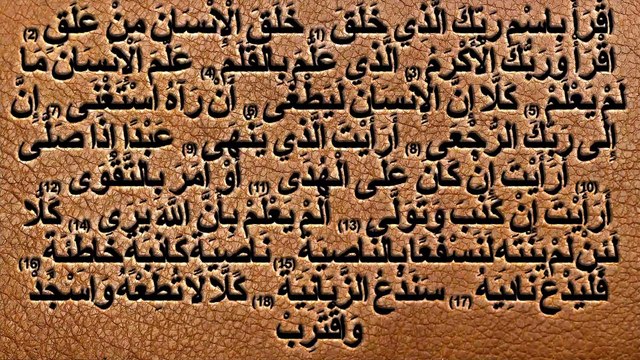 اقْرَأْ بِاسْمِ رَبِّكَ الَّذِي خَلَقَ (1) خَلَقَ الْإِنْسَانَ مِنْ عَلَقٍ (2)
اقْرَأْ وَرَبُّكَ الْأَكْرَمُ (3) الَّذِي عَلَّمَ بِالْقَلَمِ (4) عَلَّمَ الْإِنْسَانَ مَا
لَمْ يَعْلَمْ (5) كَلَّا إِنَّ الْإِنْسَانَ لَيَطْغَى (6) أَنْ رَآهُ اسْتَغْنَى (7) إِنَّ
إِلَى رَبِّكَ الرُّجْعَى (8) أَرَأَيْتَ الَّذِي يَنْهَى (9) عَبْدًا إِذَا صَلَّى
(10) أَرَأَيْتَ إِنْ كَانَ عَلَى الْهُدَى (11) أَوْ أَمَرَ بِالتَّقْوَى (12)
أَرَأَيْتَ إِنْ كَذَّبَ وَتَوَلَّى (13) أَلَمْ يَعْلَمْ بِأَنَّ اللَّهَ يَرَى (14) كَلَّا
لَئِنْ لَمْ يَنْتَهِ لَنَسْفَعًا بِالنَّاصِيَةِ (15) نَاصِيَةٍ كَاذِبَةٍ خَاطِئَةٍ (16)
فَلْيَدْعُ نَادِيَهُ (17) سَنَدْعُ الزَّبَانِيَةَ (18) كَلَّا لَا تُطِعْهُ وَاسْجُدْ
وَاقْتَرِبْ